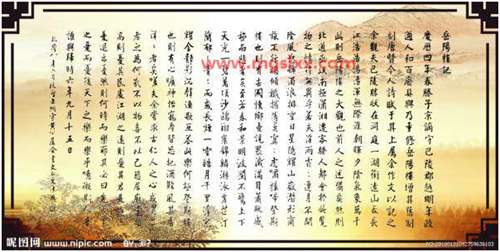 岳陽樓記
慶曆四年春滕子京謫守巴陵郡越明年政
通人和百廢具興乃重修岳陽樓增其舊制
刻唐賢今人詩賦于其上屬余作文以記之
余觀夫巴陵勝狀在洞庭一湖銜遠山吞長
江浩浩湯湯橫無際涯朝暉夕陰氣象萬千
此則岳陽樓之大觀也前人之述備矣然則
北通巫峽南極瀟湘遷客騷人多會於此覽
物之情得無異乎若夫霪雨霏霏連月不開
陰風怒號濁浪排空日星隱耀山岳潛形商
旅不行檣傾楫摧薄暮冥冥虎嘯猿啼登斯
樓也則有去國懷鄉憂讒畏譏滿目蕭然感
極而悲者矣至若春和景明波瀾不驚上下
天光一碧萬頃沙鷗翔集錦鱗游泳岸芷汀
蘭郁郁青青而或長煙一空皓月千里浮光
耀金靜影沉璧漁歌互答此樂何極登斯樓
也則有心曠神怡寵辱皆忘把酒臨風其喜
洋洋者矣嗟夫予嘗求古仁人之心或異二
者之為何哉不以物喜不以己悲居廟堂之
高則憂其民處江湖之遠則憂其君是進亦
憂退亦憂然則何時而樂耶其必曰先天下
之憂而憂後天下之樂而樂乎噫微斯人吾
誰與歸時六年九月十五日
www.rmgsfxx.com
昵图网
www.nipic.com